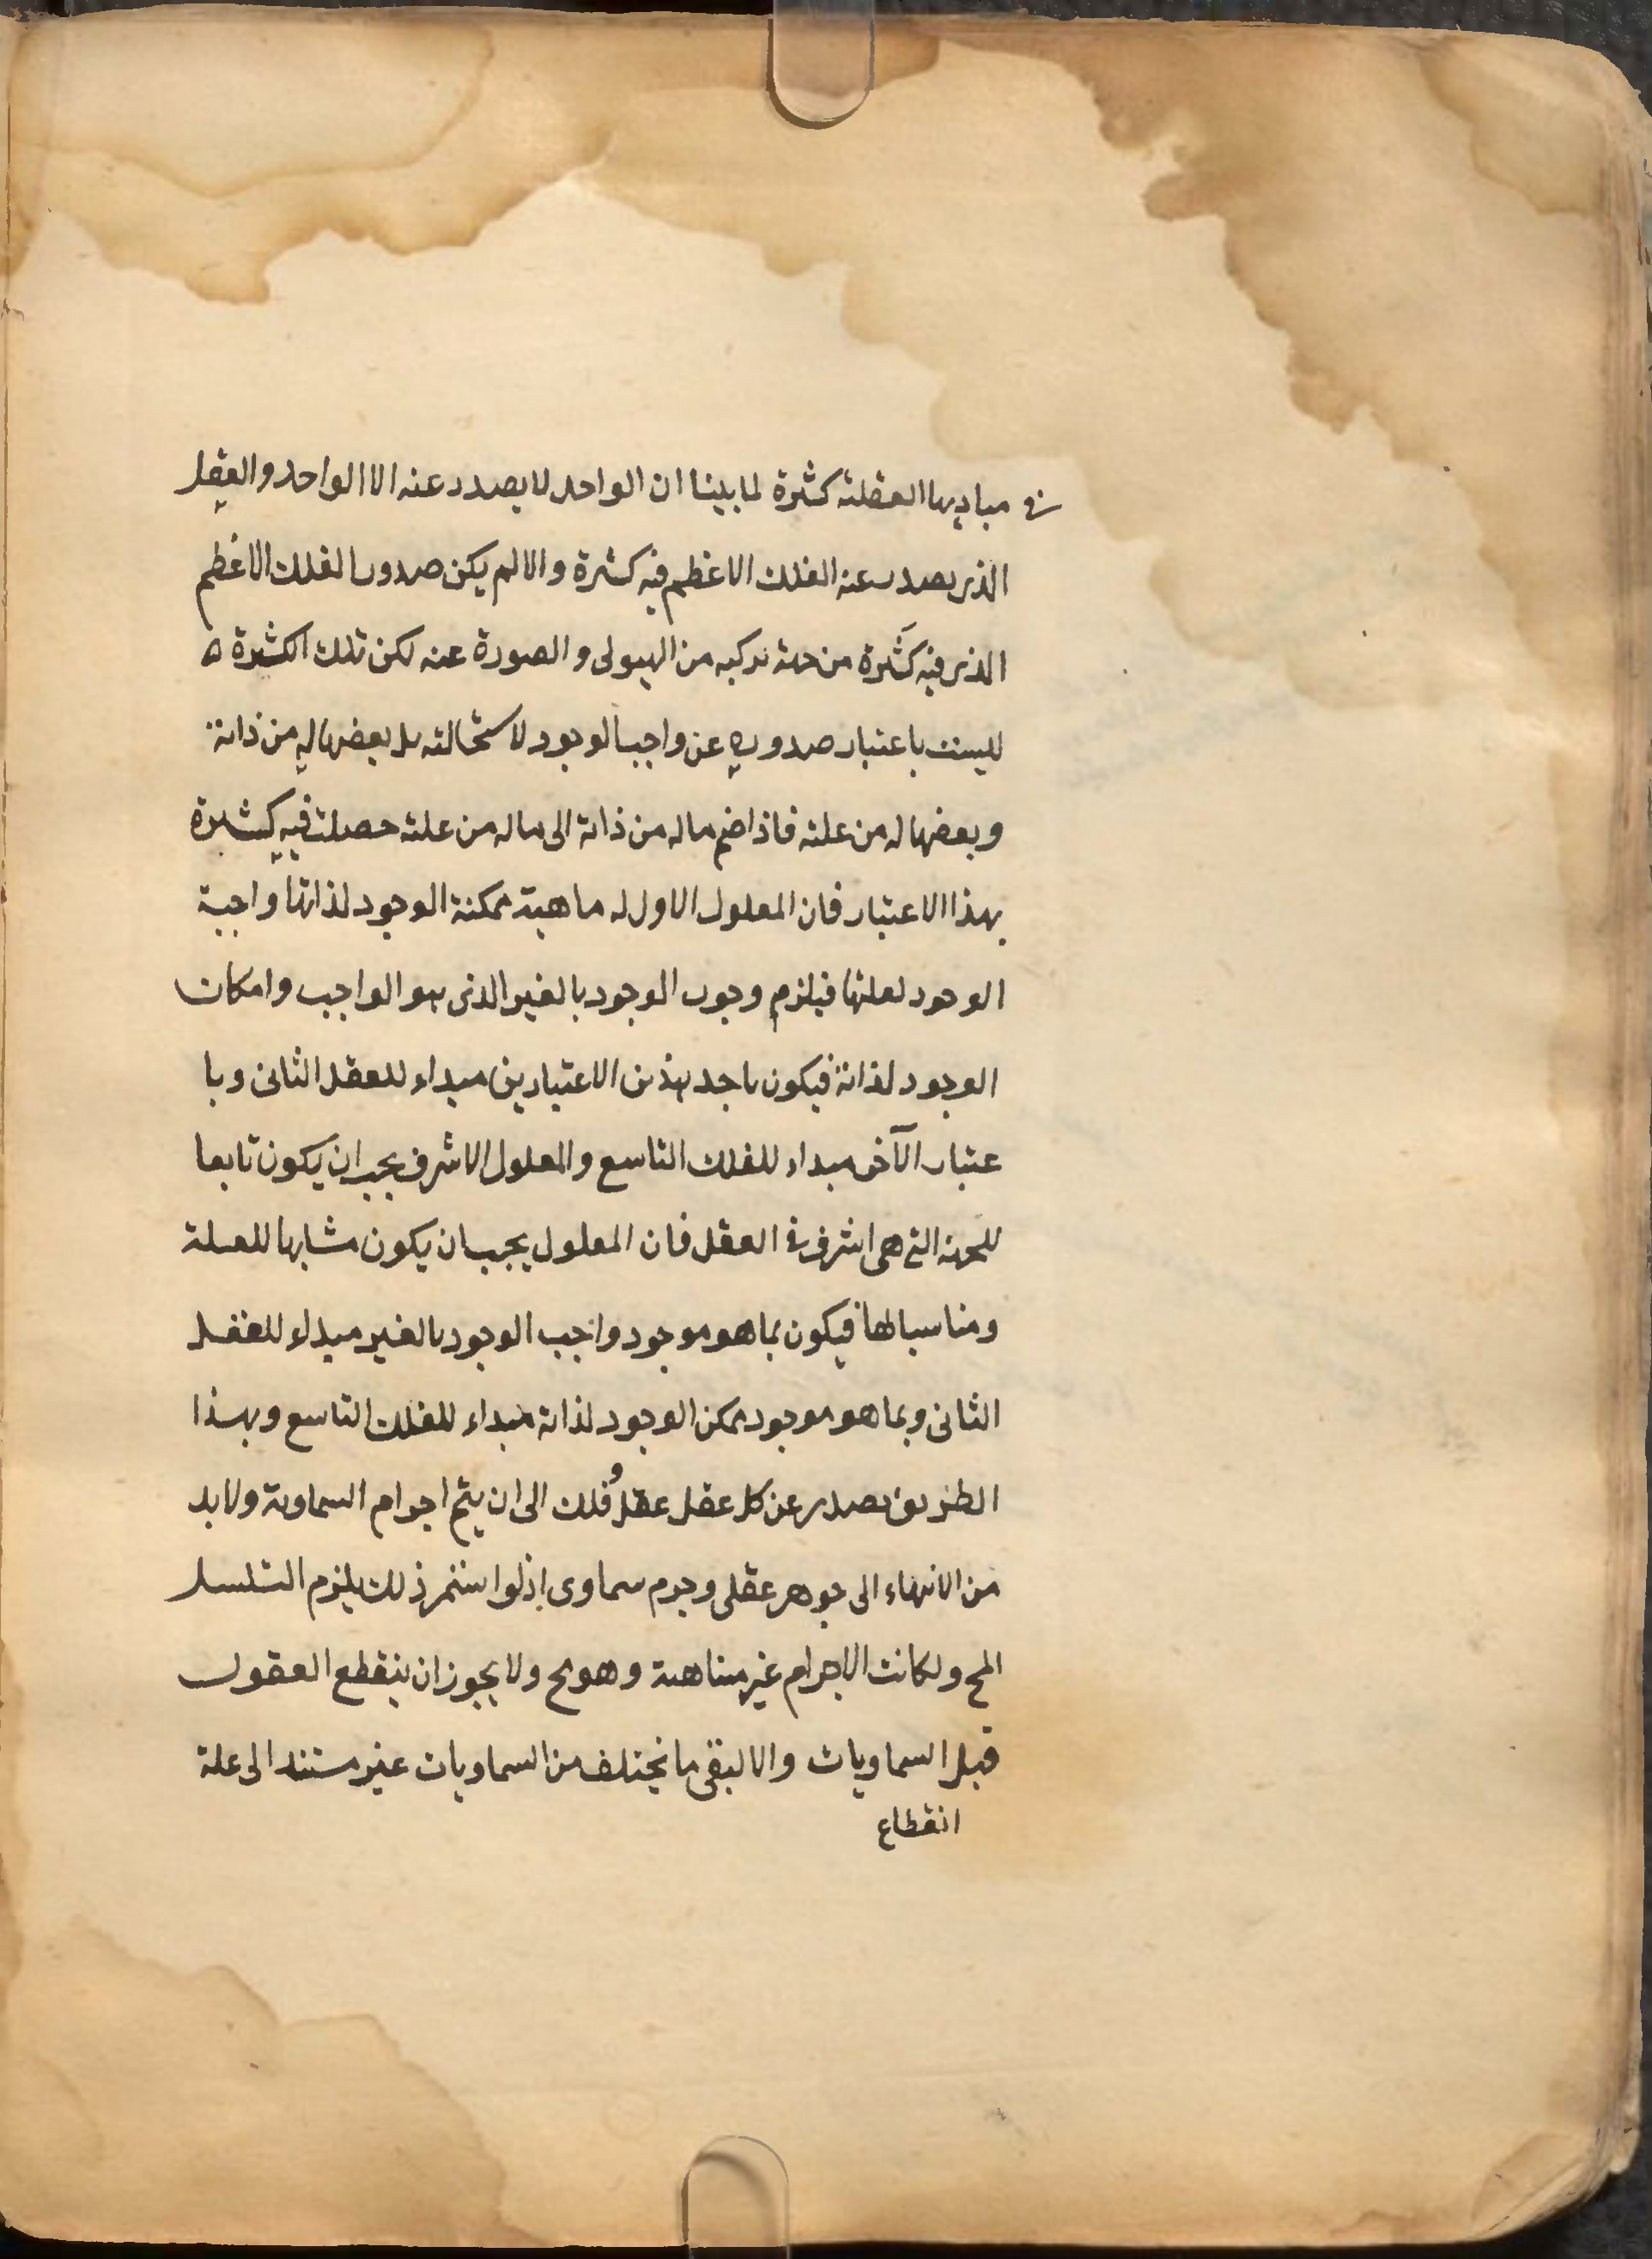 في مباديها العقلية كثرة لما بينا ان الواحد لا يصدر عنه الا الواحد والعقل
الذي يصدر عنه الفلك الاعظم فيه كثرة والا لم يكن صدور الفلك الاعظم
الذي فيه كثرة من جهة تركبه من الهيولى والصورة عنه لكن تلك الكثرة ه
ليست باعتبار صدوره عن واجب الوجود لاستحالته بل بعضها له من ذاته
وبعضها له من علته فاذا ضم ما له من ذاته الى ما له من علته حصلت فيه كثيرة
بهذا الاعتبار فان المعلول الاول له ماهية ممكنة الوجود لذاتها واجبة
الوجود لعلتها فيلزم وجوب الوجود بالغير الذي هو الواجب وامكان
الوجود لذاته فيكون باحد هذين الاعتبارين مبداء للعقل الثاني وبا
عتبار الآخر مبداء للفلك التاسع والمعلول الاشرف يجب ان يكون تابعا
للجهة التي هي اشرف في العقل فان المعلول يجب ان يكون مشابها للعلة
ومناسبا لها فيكون بما هو موجود واجب الوجود بالغير مبداء للعقل
الثاني وبما هو موجود ممكن الوجود لذاته مبداء للفلك التاسع وبهذا
الطريق يصدر عن كل عقل عقل وفلك الى ان يتم اجرام السماوية ولا بد
من الانتهاء الى جوهر عقلي وجرم سماوي اذ لو استمر ذلك يلزم التسلسل
المح ولكانت الاجرام غير متناهية وهو مح ولا يجوز ان ينقطع العقول
قبل السماويات والا لبقي ما يختلف من السماويات غير مستند الى علة
انقطاع